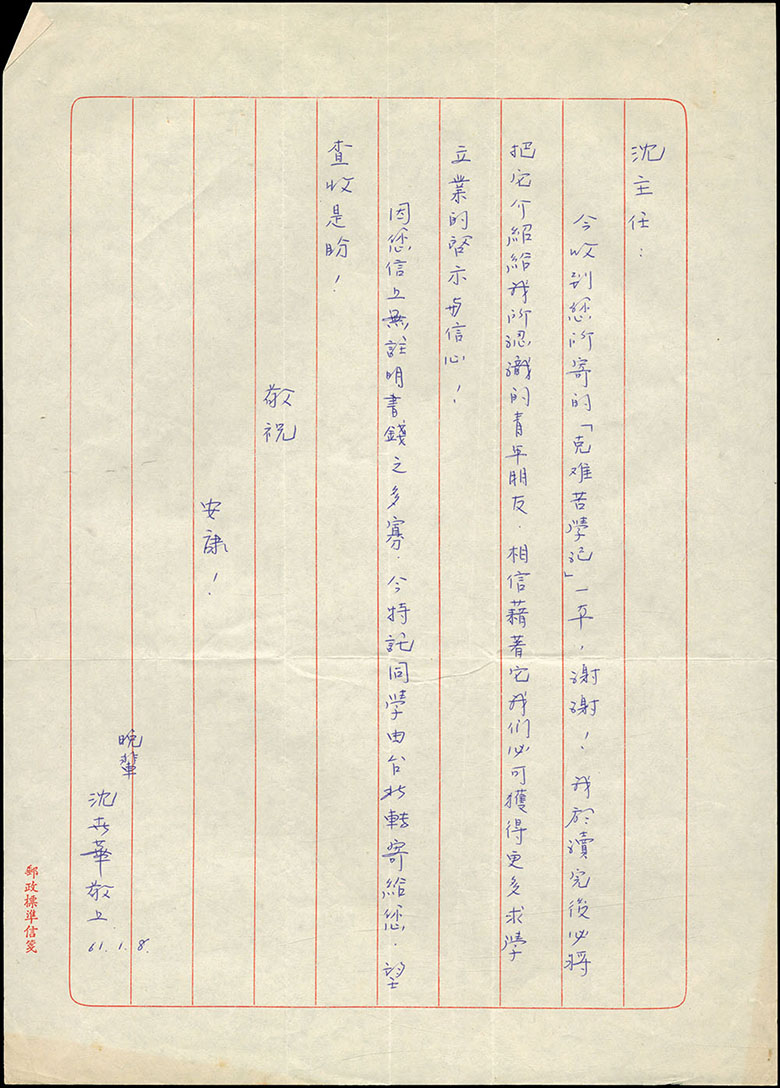 沈主任：
今收到您所寄的「克难苦學記」一本，谢谢！我於讀完後必將
把它介紹給我所認識的青年朋友．相信藉著它我们必可獲得更多求學
立業的啓示与信心！
因您信上無註明書錢之多寡．今特託同學由台北轉寄給您．望
查收是盼！
敬祝
安康！
晚輩
沈世華敬上
61.1.8.
郵政標準信箋